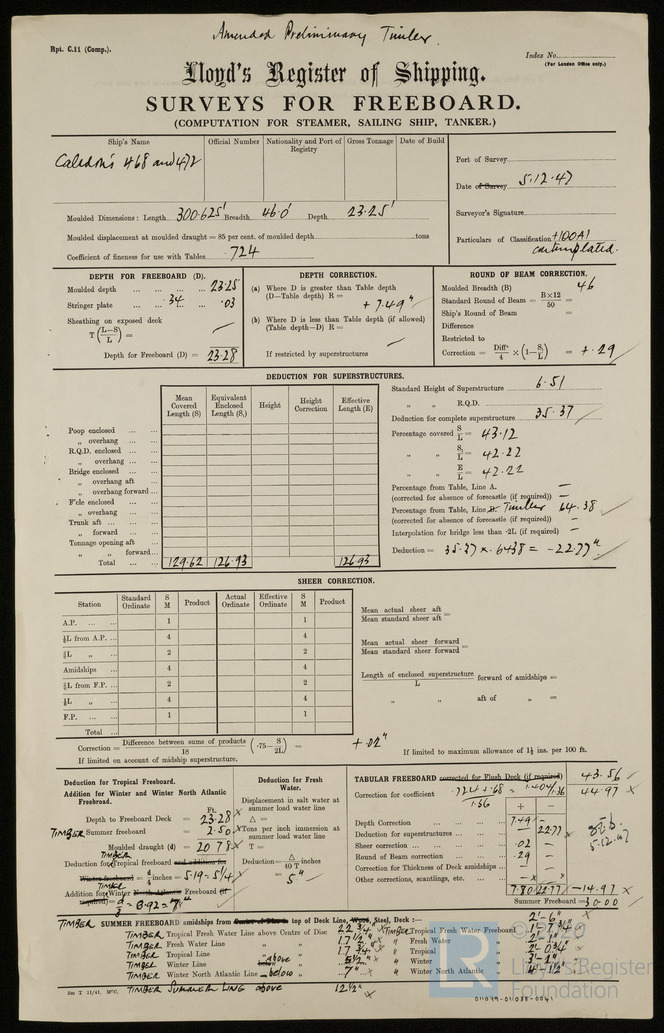 Amended Preliminary Timber.
Rpt. C.11 (Comp.).
Index No.
(For London Office only.)
Lloyd's Register of Shipping.
SURVEYS FOR FREEBOARD.
(COMPUTATION FOR STEAMER, SAILING SHIP, TANKER.)
Ship's Name Official Number Nationality and Port of Registry Gross Tonnage Date of Build
Caledon's 468 and 472
Port of Survey
Date of Survey 5.12.47
Surveyor's Signature
Particulars of Classification +100A1 contemplated.
Moulded Dimensions: Length 300.625' Breadth 46.0' Depth 23.25'
Moulded displacement at moulded draught = 85 per cent. of moulded depth tons
Coefficient of fineness for use with Tables .724
DEPTH FOR FREEBOARD (D).
Moulded depth ... ... ... 23.25
Stringer plate ... .34 ... .03
Sheathing on exposed deck
T (L-S/L) =
Depth for Freeboard (D) = 23.28
DEPTH CORRECTION.
(a) Where D is greater than Table depth
(D—Table depth) R =
+ 7.49"
(b) Where D is less than Table depth (if allowed)
(Table depth—D) R =
If restricted by superstructures
ROUND OF BEAM CORRECTION.
Moulded Breadth (B) 46
Standard Round of Beam = B×12/50 =
Ship's Round of Beam =
Difference
Restricted to
Correction = Diffce/4 × (1 - S₁/L) = +.29
DEDUCTION FOR SUPERSTRUCTURES.
Mean Covered Length (S) Equivalent Enclosed Length (S₁) Height Height Correction Effective Length (E)
Poop enclosed ... ...
„ overhang ... ...
R.Q.D. enclosed ... ...
„ overhang ... ...
Bridge enclosed ... ...
„ overhang aft ...
„ overhang forward ...
F'cle enclosed ... ...
„ overhang ... ...
Trunk aft ... ... ...
„ forward ... ...
Tonnage opening aft ...
„ „ forward...
Total ... ... 129.62 126.93 126.93
Standard Height of Superstructure 6.51
„ „ R.Q.D.
Deduction for complete superstructure 35.37
Percentage covered S/L = 43.12
„ „ S₁/L = 42.22
„ „ E/L = 42.22
Percentage from Table, Line A. —
(corrected for absence of forecastle (if required)) —
Percentage from Table, Line B. Timber 64.38
(corrected for absence of forecastle (if required)) —
Interpolation for bridge less than ·2L (if required) —
Deduction = 35.37 × .6438 = -22.77"
SHEER CORRECTION.
Station Standard Ordinate S M Product Actual Ordinate Effective Ordinate S M Product
A.P. ... ... 1 1
⅙L from A.P. ... 4 4
⅓L „ ... 2 2
Amidships ... 4 4
⅓L from F.P. ... 2 2
⅙L „ ... 4 4
F.P. ... ... 1 1
Total ...
Mean actual sheer aft
Mean standard sheer aft =
Mean actual sheer forward
Mean standard sheer forward =
Length of enclosed superstructure/L forward of amidships =
„ „ aft of „ =
Correction = Difference between sums of products/18 (·75 - S/2L) = +.02"
If limited on account of midship superstructure.
If limited to maximum allowance of 1½ ins. per 100 ft.
Deduction for Tropical Freeboard.
Addition for Winter and Winter North Atlantic Freeboard.
Ft.
Depth to Freeboard Deck = 23.28
TIMBER Summer freeboard = 2.50
Moulded draught (d) = 20.78
TIMBER
Deduction for Tropical freeboard and addition for
Winter freeboard = d/4 inches = 5.19 = 5¼"
TIMBER
Addition for Winter North Atlantic Freeboard (if
required) = d/3 = 6.92 = 7"
Deduction for Fresh Water.
Displacement in salt water at summer load water line
△ =
Tons per inch immersion at summer load water line
T =
Deduction = △/40 T inches
= 5"
TABULAR FREEBOARD corrected for Flush Deck (if required) 43.56
Correction for coefficient .724+.68/1.36 = 1.404/1.36 44.97
+ -
Depth Correction ... 7.49 —
Deduction for superstructures ... — 22.77
Sheer correction ... .02 —
Round of Beam correction ... .29 —
Correction for Thickness of Deck amidships —
Other corrections, scantlings, etc. —
7.80 22.77 -14.97
Summer Freeboard = 30.00
5.12.47
TIMBER SUMMER FREEBOARD amidships from Centre of Disc to top of Deck Line, Wood, Steel, Deck :— 2'-6"
TIMBER Tropical Fresh Water Line above Centre of Disc 22¾" TIMBER Tropical Fresh Water Freeboard
TIMBER Fresh Water Line „ „ 17½" „ Fresh Water „
TIMBER Tropical Line „ „ 17¾" „ Tropical „ 2'-0¾"
TIMBER Winter Line above „ „ Winter „ 3'-2"
TIMBER Winter North Atlantic Line below „ 7" „ Winter North Atlantic „
TIMBER SUMMER LINE above 12½"
© 2020
LR Lloyd's Register Foundation
011079-011088-0041